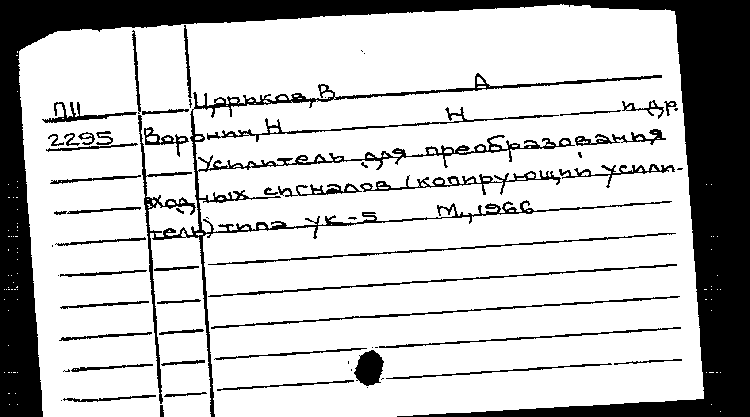 П11 Царьков, В А
2295 Воронин, Н Н и др.
Усилитель для преобразования
входных сигналов (копирующий усили-
тель) типа УК-5 М., 1966